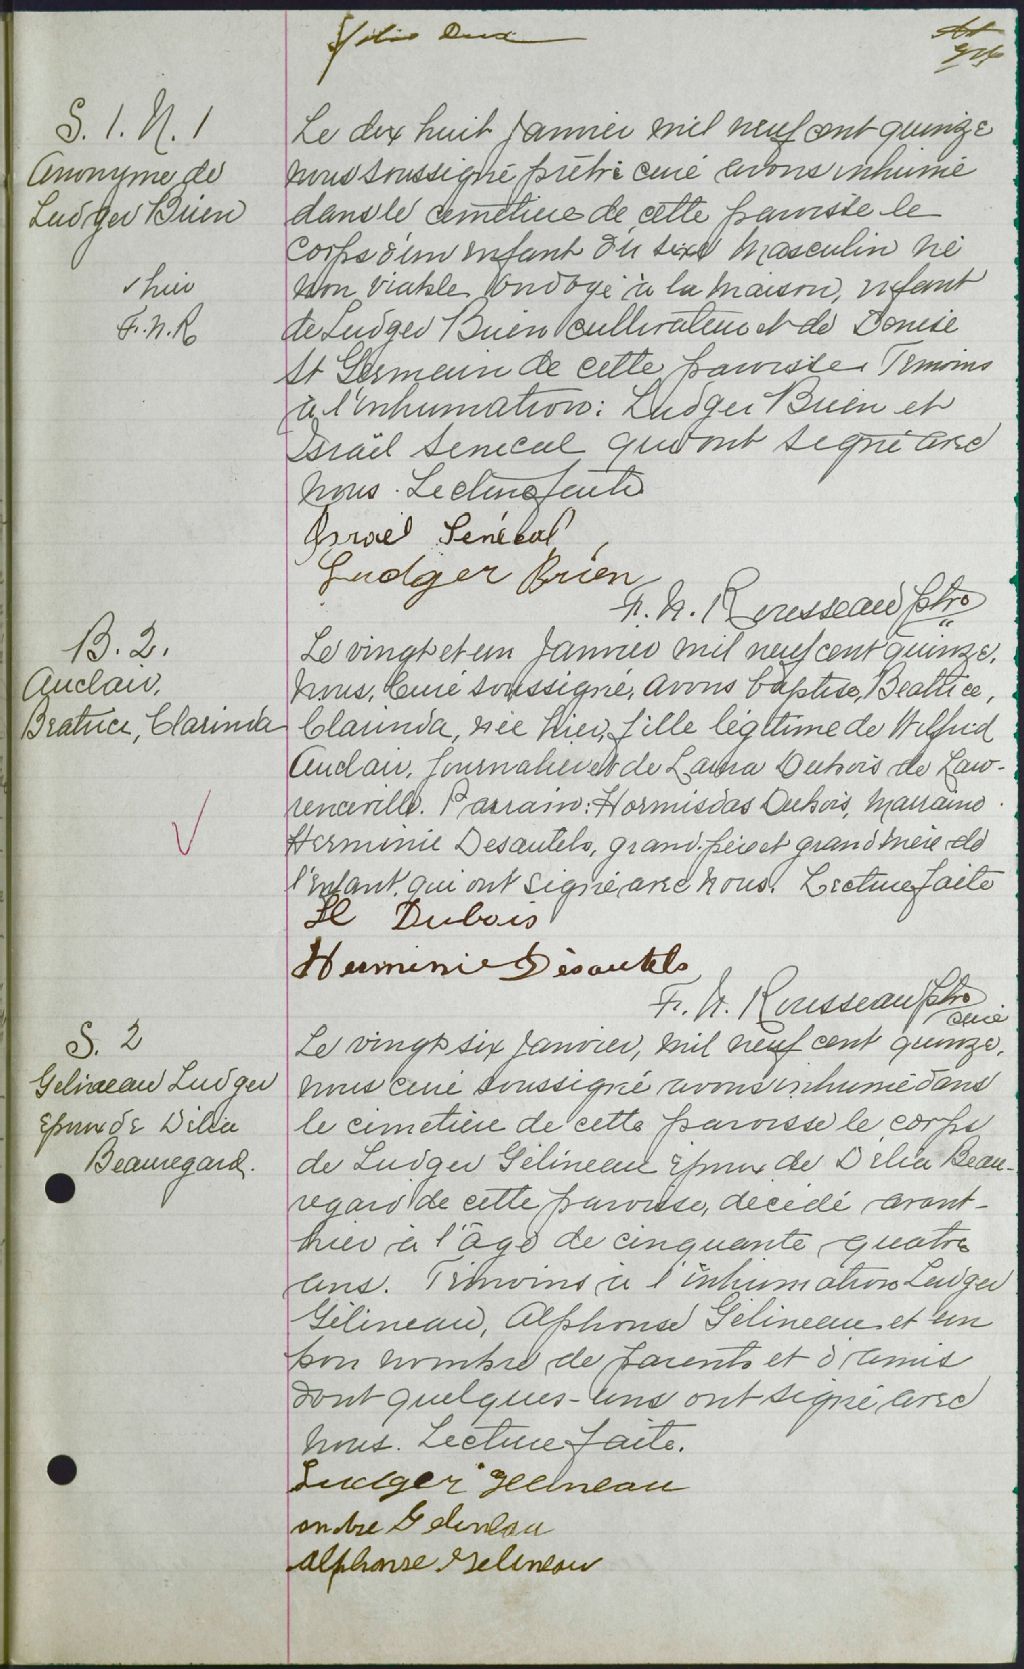 folio deux
S. 1. N. 1
Anonyme de
Ludger Brien
hier
F. N. R
Le dix huit Janvier mil neuf cent quinze
nous soussigné prêtre curé avons inhumé
dans le cimetière de cette paroisse le
corps d'un enfant du sexe masculin né
non viable, ondoyé à la maison, enfant
de Ludger Brien cultivateur et de Denise
St Germain de cette paroisse. Témoins
à l'inhumation: Ludger Brien et
Israël Senecal qui ont signé avec
nous. Lecture faite
Israel Senécal
Ludger Brien
F. N. Rousseau ptre
B. 2.
Auclair,
Beatrice, Clarinda
Le vingt et un Janvier mil neuf cent quinze,
nous, Curé soussigné, avons baptisé, Beatrice,
Clarinda, née hier, fille légitime de Wilfrid
Auclair, journalier et de Laura Dubois de Law-
renceville. Parrain: Hormisdas Dubois, marraine
Herminie Desautels, grand-père et grand'mère de
l'enfant, qui ont signé avec nous. Lecture faite
H Dubois
Herminie Désautels
F. N. Rousseau ptre
curé
S. 2
Gelineau Ludger
Epoux de Délia
Beauregard.
Le vingt six Janvier, mil neuf cent quinze,
nous curé soussigné avons inhumé dans
le cimetière de cette paroisse le corps
de Ludger Gélineau époux de Délia Beau-
regard de cette paroisse, décédé avant-
hier à l'âge de cinquante quatre
ans. Témoins à l'inhumation Ludger
Gélineau, Alphonse Gélineau et un
bon nombre de parents et d'amis
dont quelques-uns ont signé avec
nous. Lecture faite.
Ludger Gelineau
andre Gelineau
Alphonse Gelineau